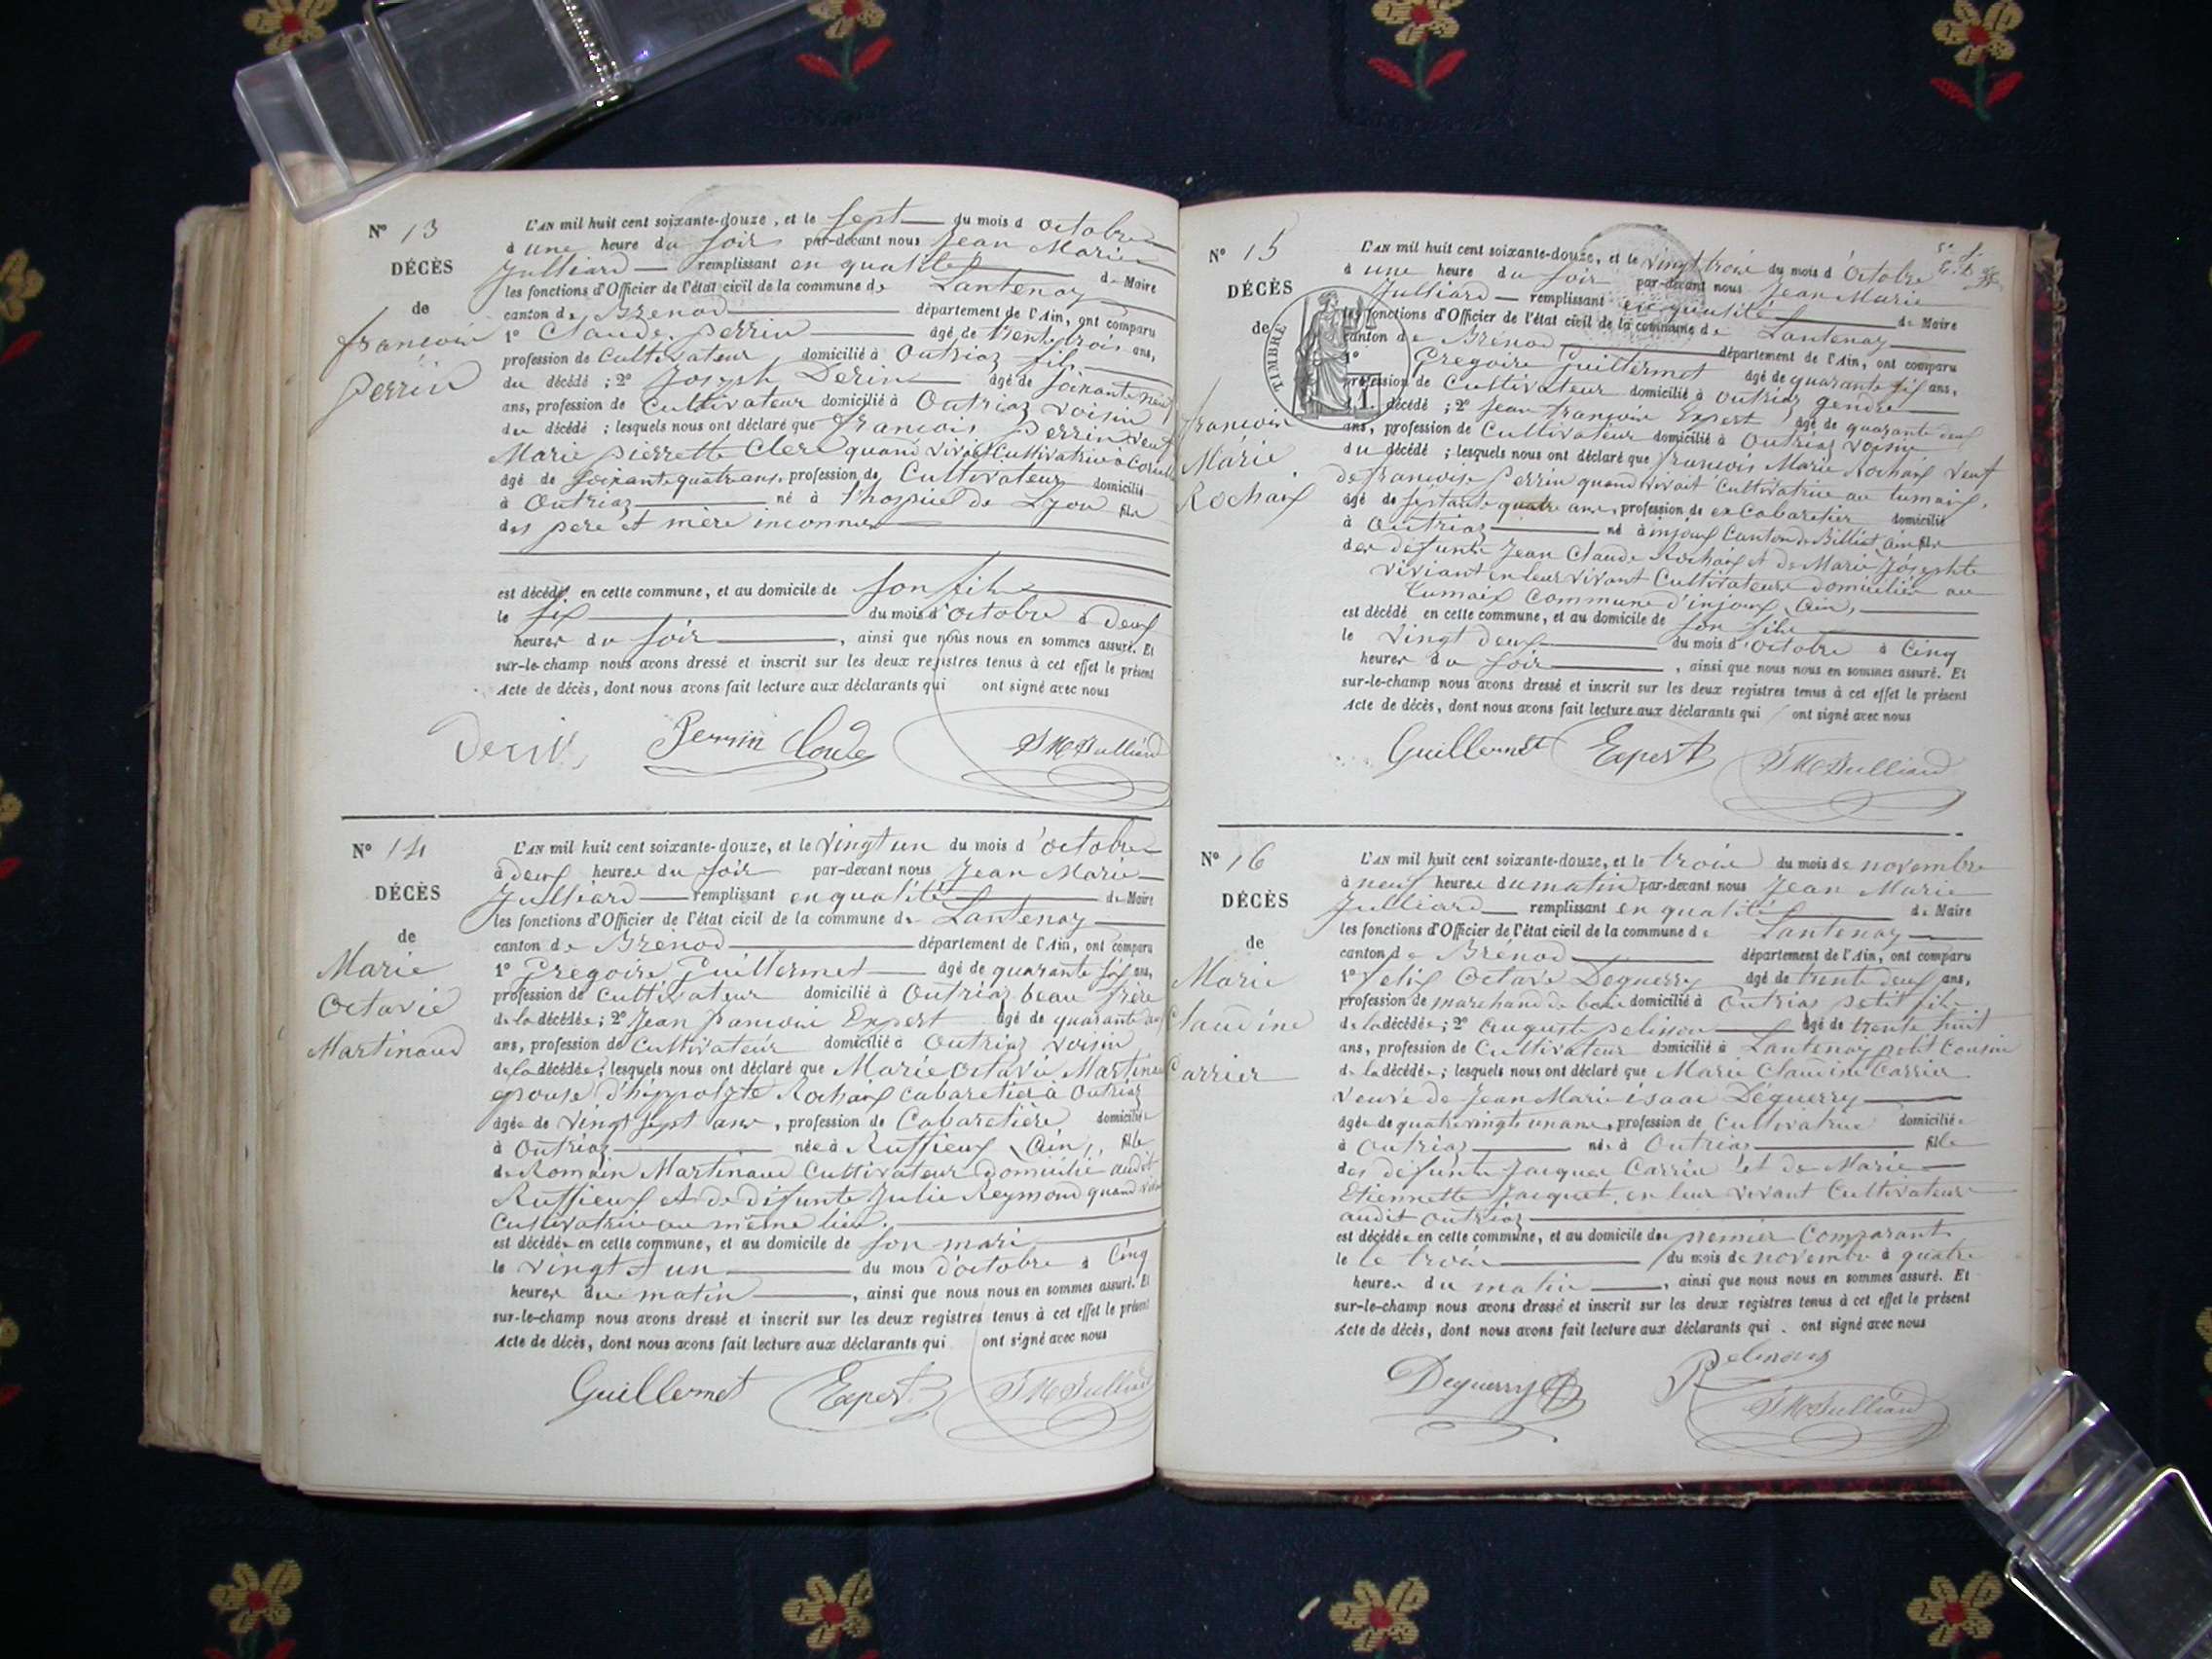 N° 13
DÉCÈS
de
françois
Perrin
L'AN mil huit cent soixante-douze, et le Sept du mois d octobre
à une heure du soir par-devant nous Jean Marie
Julliard remplissant en qualité de Maire
les fonctions d'Officier de l'état civil de la commune de Lantenay
canton de Brénod département de l'Ain, ont comparu
1° Claude perrin âgé de trente trois ans,
profession de Cultivateur domicilié à Outriaz fils
du décédé ; 2° Joseph Derin âgé de soixante neuf
ans, profession de Cultivateur domicilié à Outriaz voisin
du décédé ; lesquels nous ont déclaré que françois Perrin veuf
Marie pierrette Clerc quand vivait Cultivatrice à
âgé de soixante quatre ans, profession de Cultivateur domicilié
à Outriaz né à l'hospice de Lyon fils
des père et mère inconnus
est décédé en cette commune, et au domicile de son fils
le six du mois d'octobre à deux
heures du soir, ainsi que nous nous en sommes assuré. Et
sur-le-champ nous avons dressé et inscrit sur les deux registres tenus à cet effet le présent
Acte de décès, dont nous avons fait lecture aux déclarants qui ont signé avec nous
Perrin Claude JM Julliard
N° 14
DÉCÈS
de
Marie
Octavie
Martinaud
L'AN mil huit cent soixante-douze, et le vingt un du mois d'octobre
à deux heures du soir par-devant nous Jean Marie
Julliard remplissant en qualité de Maire
les fonctions d'Officier de l'état civil de la commune de Lantenay
canton de Brénod département de l'Ain, ont comparu
1° Gregoire Guillermet âgé de quarante six ans,
profession de Cultivateur domicilié à Outriaz beau frère
de la décédée ; 2° Jean françois Expert âgé de quarante deux
ans, profession de Cultivateur domicilié à Outriaz voisin
de la décédée ; lesquels nous ont déclaré que Marie octavie
épouse d'hippolyte Rochaix cabaretier à Outriaz
âgée de vingt sept ans, profession de Cabaretière domiciliée
à Outriaz née à Ruffieux (Ain), fille
de Romain Martinaud Cultivateur domicilié audit
Ruffieux et de défunte Julie Reymond quand
Cultivatrice au même lieu.
est décédée en cette commune, et au domicile de son mari
le vingt et un du mois d'octobre à Cinq
heures du matin, ainsi que nous nous en sommes assuré. Et
sur-le-champ nous avons dressé et inscrit sur les deux registres tenus à cet effet le présent
Acte de décès, dont nous avons fait lecture aux déclarants qui ont signé avec nous
Guillermet Expert JM Julliard
N° 15
DÉCÈS
de
TIMBRE
françois
Marie
Rochaix
L'AN mil huit cent soixante-douze, et le vingt trois du mois d'Octobre
à une heure du soir par-devant nous Jean Marie
Julliard remplissant en qualité de Maire
les fonctions d'Officier de l'état civil de la commune de Lantenay
canton de Brénod département de l'Ain, ont comparu
1° Gregoire Guillermet âgé de quarante six ans,
profession de Cultivateur domicilié à Outriaz gendre
décédé ; 2° Jean françois Expert âgé de quarante deux
ans, profession de Cultivateur domicilié à Outriaz voisin
du décédé ; lesquels nous ont déclaré que françois Marie Rochaix veuf
de françoise Perrin quand vivait Cultivatrice au
âgé de septante quatre ans, profession de ex Cabaretier domicilié
à Outriaz né à injoux Canton de Billiat, Ain fils
des défunts Jean Claude Rochaix et de Marie Josephte
en leur vivant Cultivateurs domiciliés au
commune d'injoux, (Ain),
est décédé en cette commune, et au domicile de son fils
le vingt deux du mois d'octobre à Cinq
heures du soir, ainsi que nous nous en sommes assuré. Et
sur-le-champ nous avons dressé et inscrit sur les deux registres tenus à cet effet le présent
Acte de décès, dont nous avons fait lecture aux déclarants qui ont signé avec nous
Guillermet Expert JM Julliard
N° 16
DÉCÈS
de
Marie
Claudine
Carrier
L'AN mil huit cent soixante-douze, et le trois du mois de novembre
à neuf heures du matin par-devant nous Jean Marie
Julliard remplissant en qualité de Maire
les fonctions d'Officier de l'état civil de la commune de Lantenay
canton de Brénod département de l'Ain, ont comparu
1° felix Octave Deguerry âgé de trente deux ans,
profession de marchand de bois domicilié à Outriaz petit fils
de la décédée ; 2° Auguste pelisson âgé de trente huit
ans, profession de Cultivateur domicilié à Lantenay petit Cousin
de la décédée ; lesquels nous ont déclaré que Marie Claudine Carrier
veuve de Jean Marie isaac Déguerry
âgée de quatre vingts un ans, profession de Cultivatrice domiciliée
à Outriaz née à Outriaz fille
des défunts Jacques Carrier et de Marie
Etiennette Jacquet, en leur vivant Cultivateurs
audit Outriaz
est décédée en cette commune, et au domicile du premier Comparant
le le trois du mois de novembre à quatre
heures du matin, ainsi que nous nous en sommes assuré. Et
sur-le-champ nous avons dressé et inscrit sur les deux registres tenus à cet effet le présent
Acte de décès, dont nous avons fait lecture aux déclarants qui ont signé avec nous
Deguerry
JM Julliard